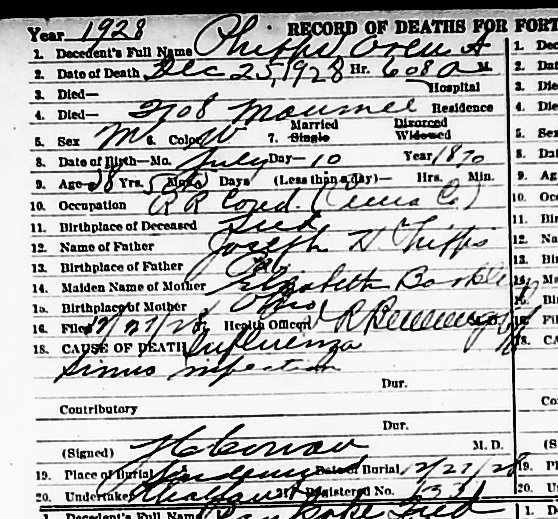 Year 1928 RECORD OF DEATHS FOR FORT
1. Decedent's Full Name Phipps Oren A
2. Date of Death Dec 25, 1928 Hr. 608 a M.
3. Died— Hospital
4. Died— 2708 Maumee Residence
5. Sex M 6. Color W 7. Married Single Divorced Widowed
8. Date of Birth—Mo. July Day—10 Year 1870
9. Age 58 Yrs. 5 Mos. Days (Less than a day)— Hrs. Min.
10. Occupation R R Cond. (Penna Co.)
11. Birthplace of Deceased Ind
12. Name of Father Joseph H Phipps
13. Birthplace of Father
14. Maiden Name of Mother Elizabeth
15. Birthplace of Mother Ohio
16. Filed 12/27/28 Health Officer
18. CAUSE OF DEATH Influenza
Sinus infection
Dur.
Contributory
Dur.
(Signed) M. D.
19. Place of Burial Lindenwood Date of Burial 12/27/28
20. Undertaker 21. Registered No.
1. Decedent's Full Name
1. Dece
2. Date
3. Died
4. Died
5. Sex
8. Date
9. Age
10. Occ
11. Birt
12. Na
13. Bir
14. Ma
Co
(S
19. Pl
20. U
1. D